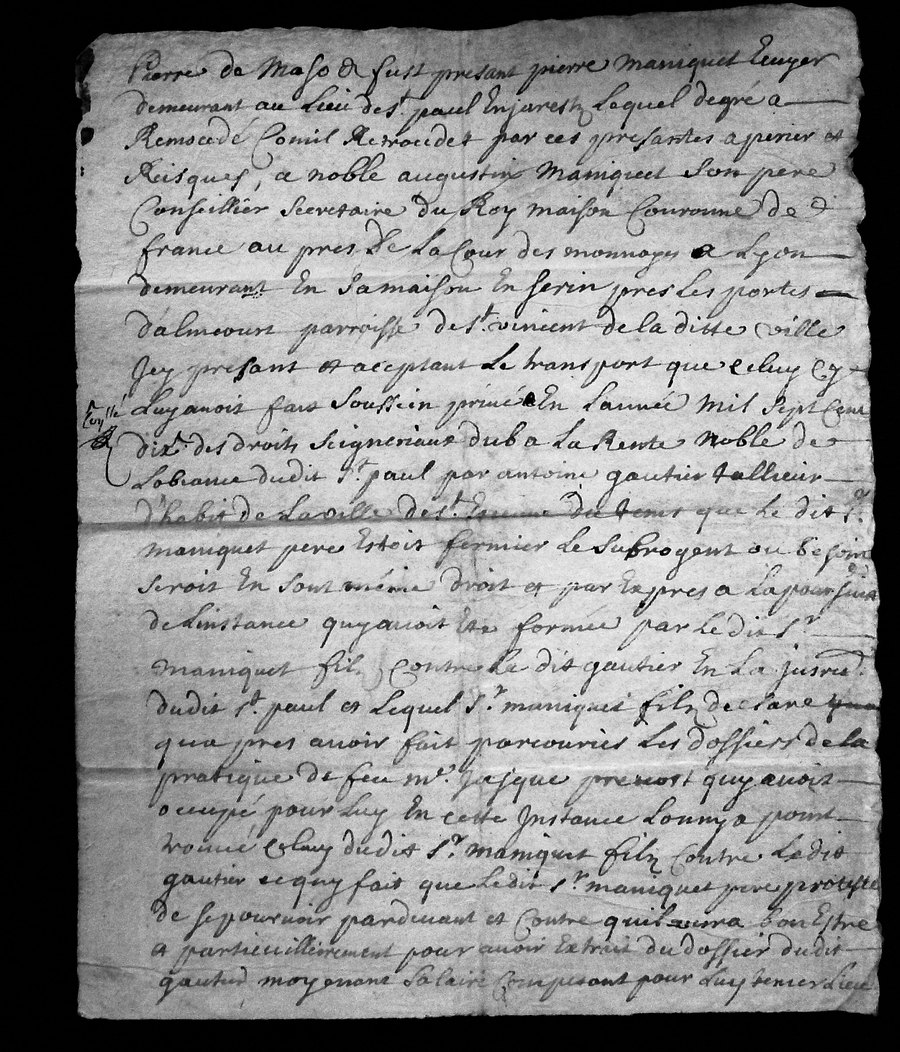 Pierre de Maso & fust presant pierre maniquet Ecuyer
demeurant au Lieu de st. paul En jarestz Lequel degré a
Remocedé Comil Retrocedet par ces presantes a perier et
Reisques, a noble augustin Maniquet Son pere
Conseillier Secretaire du Roy maison Couronne de
france au pres de La Cour des monnoyes a Lyon
demeurant En Sa maison En Serin pres Les portes
d'alincourt parroisse de st. vincent de la ditte ville
Jcy presant et aceptant Le transport que celuy cy
Luy avoit fait Soussein privé En Lannée Mil Sept Cent
dix. des droits Seigneriaux dub a La Rente Noble de
Lobiance dudit st. paul par antoine gautier tallieur
d'habit de La ville de st. Etienne Du tems que Le dit sr.
maniquet pere Estoit fermier Le Subrogent au besoin
Seroit En Sont même droit et par Expres a La poursuite
de Linstance quy avoit Eté formée par Le dit Sr.
maniquet filz Contre La dit gautier En La jusrion.
dudit st. paul et Lequel sr. maniquet filz declare
qua pres avoir fait parcouries Les dossiers de la
pratique de feu mr. Jasque prevost quy avoit
occupé pour Luy En cette Jnstance Lonny a point
trouvé Celuy dudit sr. maniquet filz Contre Ledit
gautier ce quy fait que Ledit sr. maniquet pere proteste
de se pourvoir pardevant et Contre quil aura bon Estre
et particuillieirement pour avoir Extrait du dossier dudit
gautier moyenant Salaire Competant pour Luy tenir Lieu